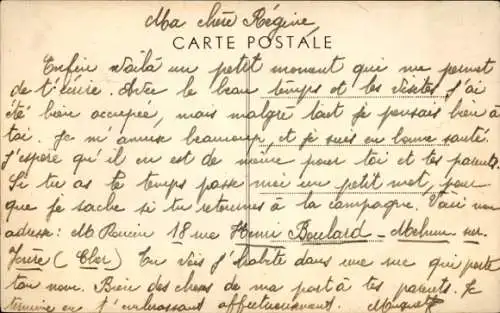 Ma chère Régine,
CARTE POSTALE
Enfin voilà un petit moment qui me permet
de t'écrire. Avec le beau temps et les visites j'ai
été bien occupée, mais malgré tout je pensais bien à
toi. Je m'amuse beaucoup, et je suis en bonne santé.
J'espère qu'il en est de même pour toi et tes parents.
Si tu as le temps passe moi un petit mot, pour
que je sache si tu retournes à la campagne. Voici mon
adresse: M 18 rue Henri Boulard - Mehun-sur-
Yèvre (Cher) Tu vois j'habite dans une rue qui porte
ton nom. Bien des choses de ma part à tes parents. Je
termine en t'embrassant affectueusement.